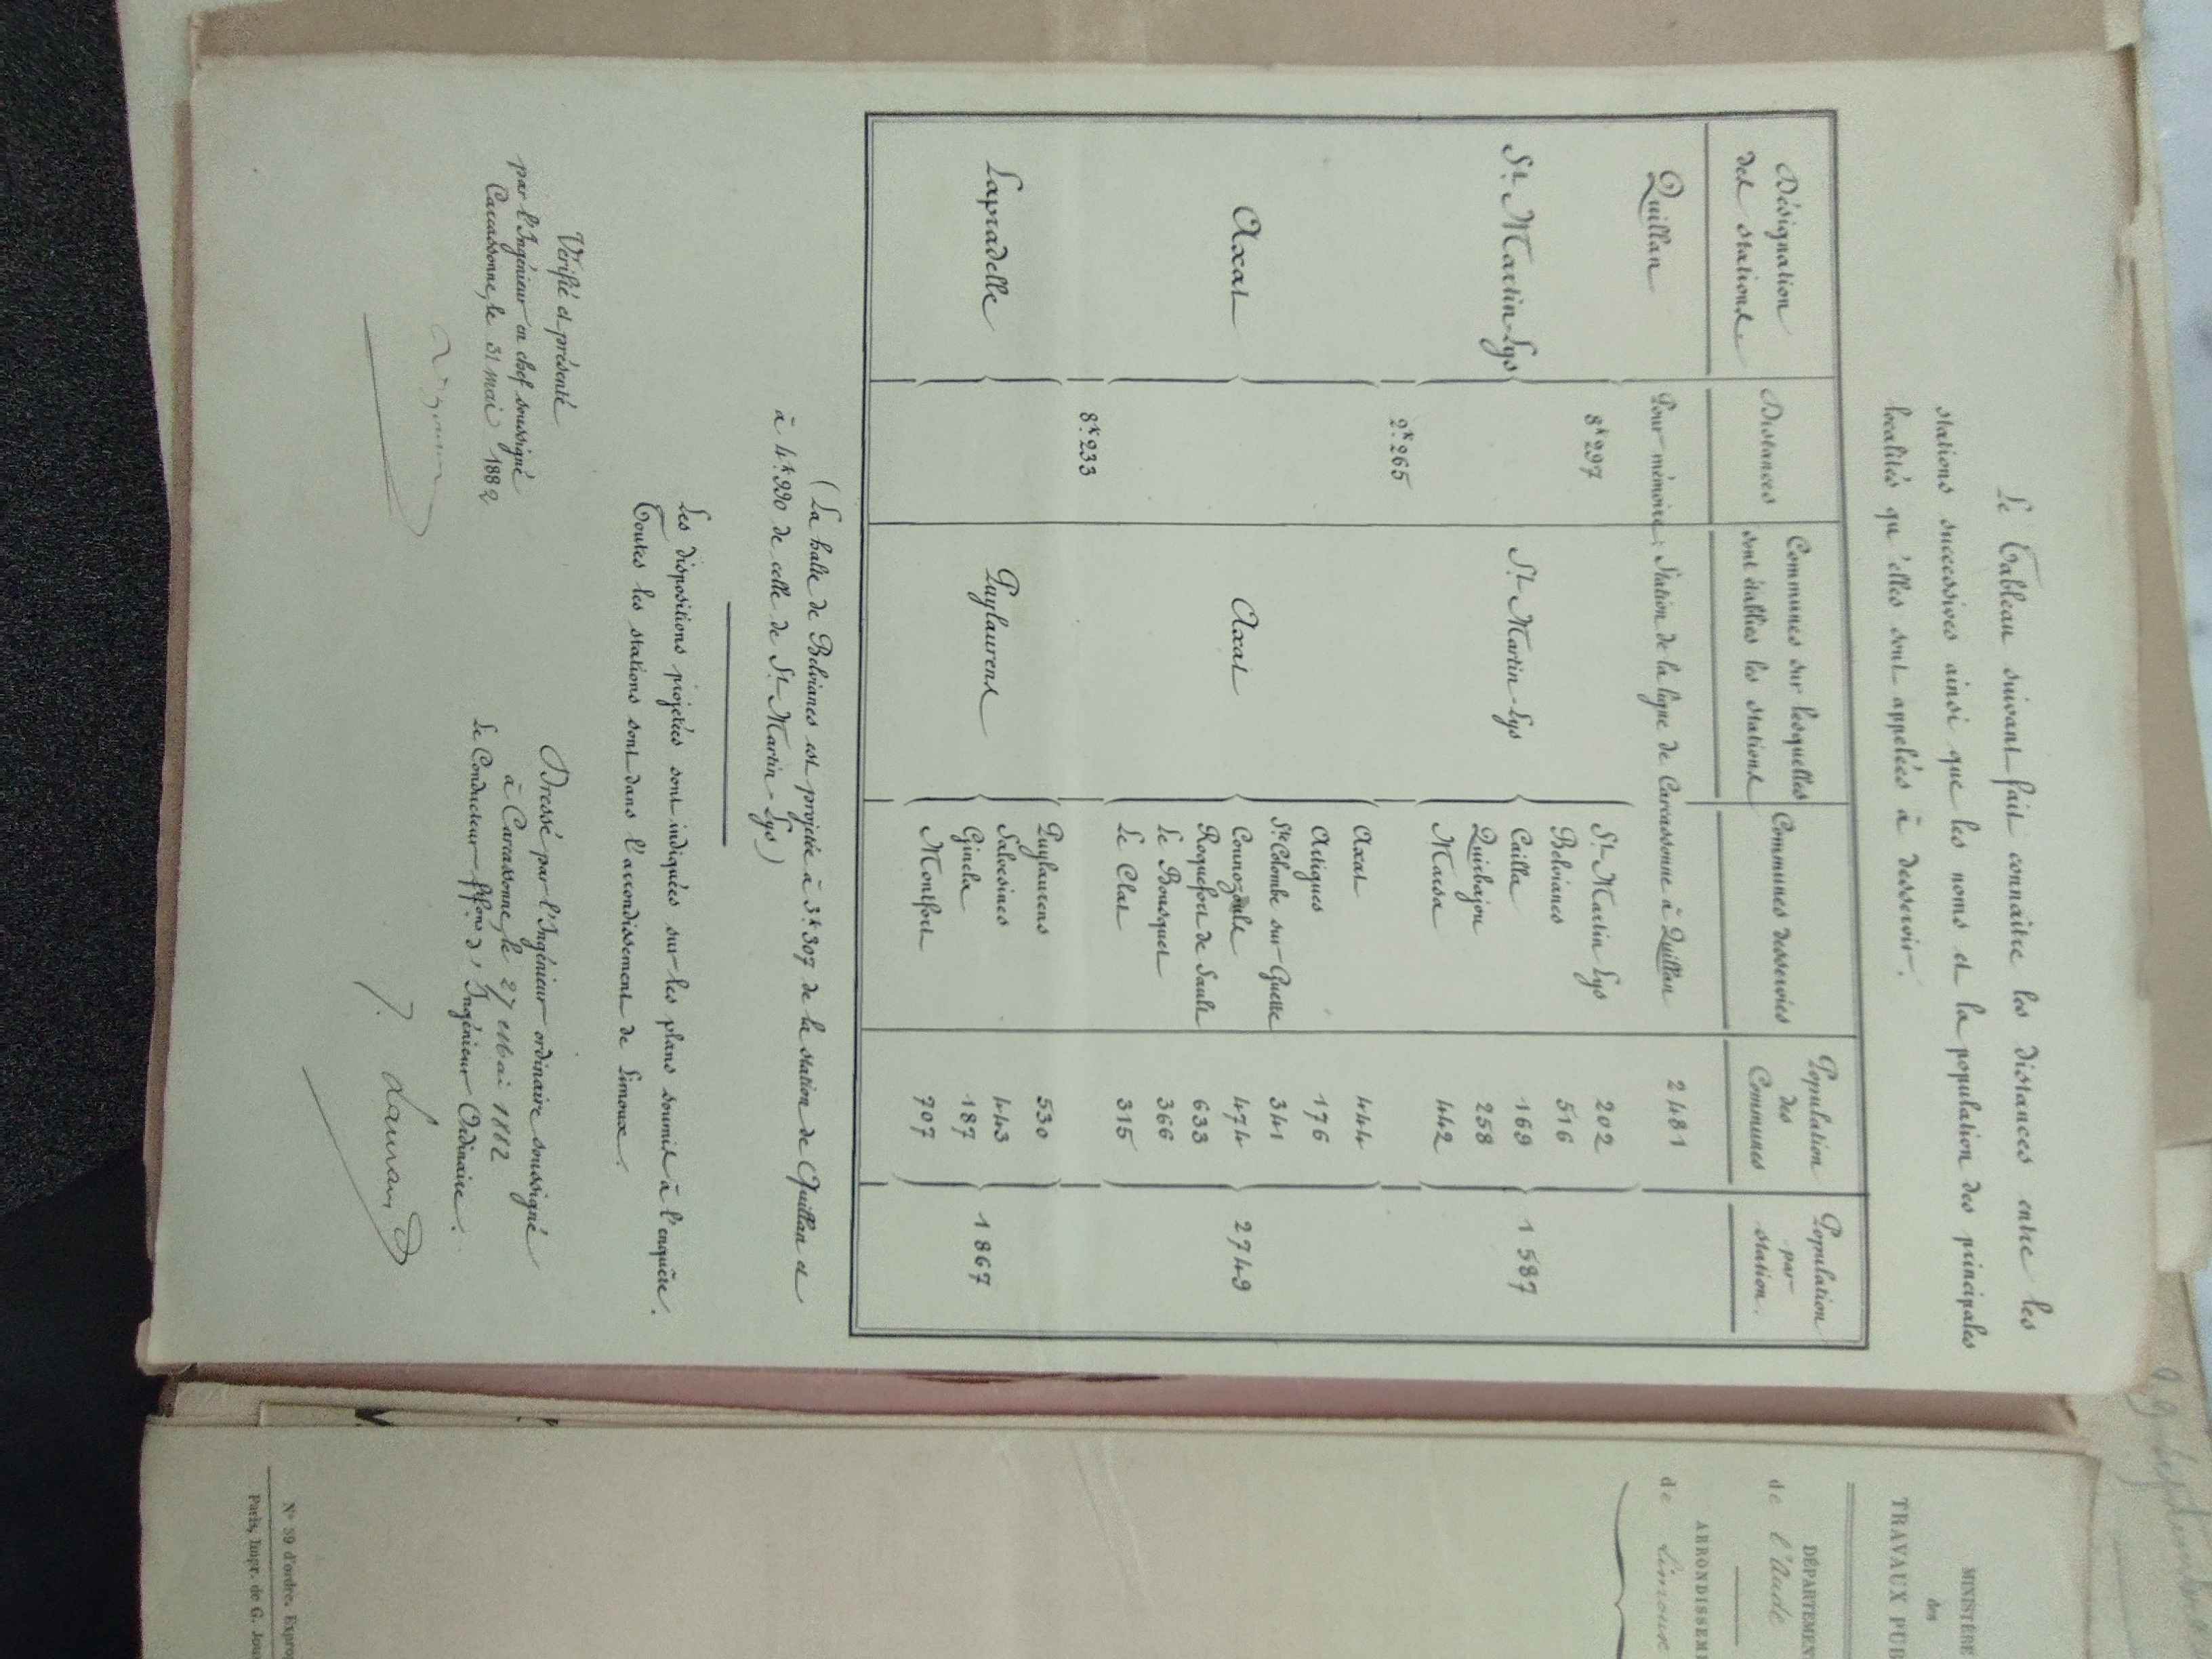 29 Septembre
Le Tableau suivant fait connaitre les distances entre les
stations successives ainsi que les noms et la population des principales
localités qu'elles sont appelées à desservir.
Désignation des stations. | Distances | Communes sur lesquelles sont établies les stations | Communes desservies | Population des Communes | Population par station.
Quillan | Pour mémoire : Station de la ligne de Carcassonne à Quillan | 2 481
8k297
St Martin Lys 202
Belvianes 516
St. Martin-Lys | St Martin-Lys | Cailla 169 | 1 587
Quirbajou 258
Marsa 442
2k.265
Axat 444
Artigues 176
Ste Colombe sur Guette 341
Axat | Axat | Counozouls 474 | 2749
Roquefort de Sault 633
Le Bousquet 366
Le Clat 315
8k.233
Puylaurens 530
Salvesines 443
Lapradelle | Puylaurens | Ginela 187 | 1 867
Montfort 707
(La halte de Belvianes est projetée à 3k.307 de la station de Quillan et
à 4k.990 de celle de St. Martin-Lys)
Les dispositions projetées sont indiquées sur les plans soumis à l'enquête.
Toutes les stations sont dans l'arrondissement de Limoux.
Vérifié et présenté
par l'Ingénieur en chef soussigné
Carcassonne, le 31 mai 1882
Dressé par l'Ingénieur ordinaire soussigné
à Carcassonne, le 27 Mai 1882
Le Conducteur ff.ons d'Ingénieur Ordinaire.
J. Lauraud
MINISTÈRE
des
TRAVAUX PUB
DÉPARTEMEN
de l'Aude
ARRONDISSEM
de Limoux
N° 39 d'ordre. Exprop
Paris, Impr. de G. Jou